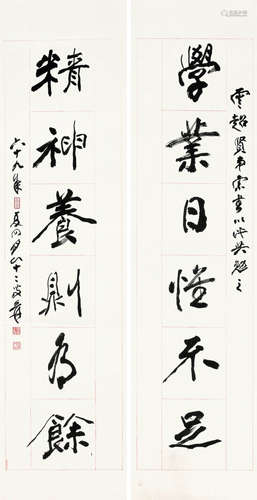 雲超賢弟索書以此
學業日不足
精神養則有餘
六十九年夏四月八十二叟爰